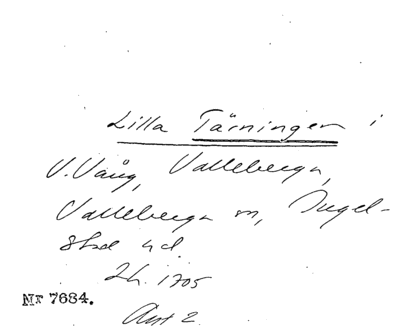 Lilla Tärningen i
V. Vång, Valleberga,
Valleberga sn, Ingel-
stad hd.
Lh. 1705
Nr 7684.
Avst 2